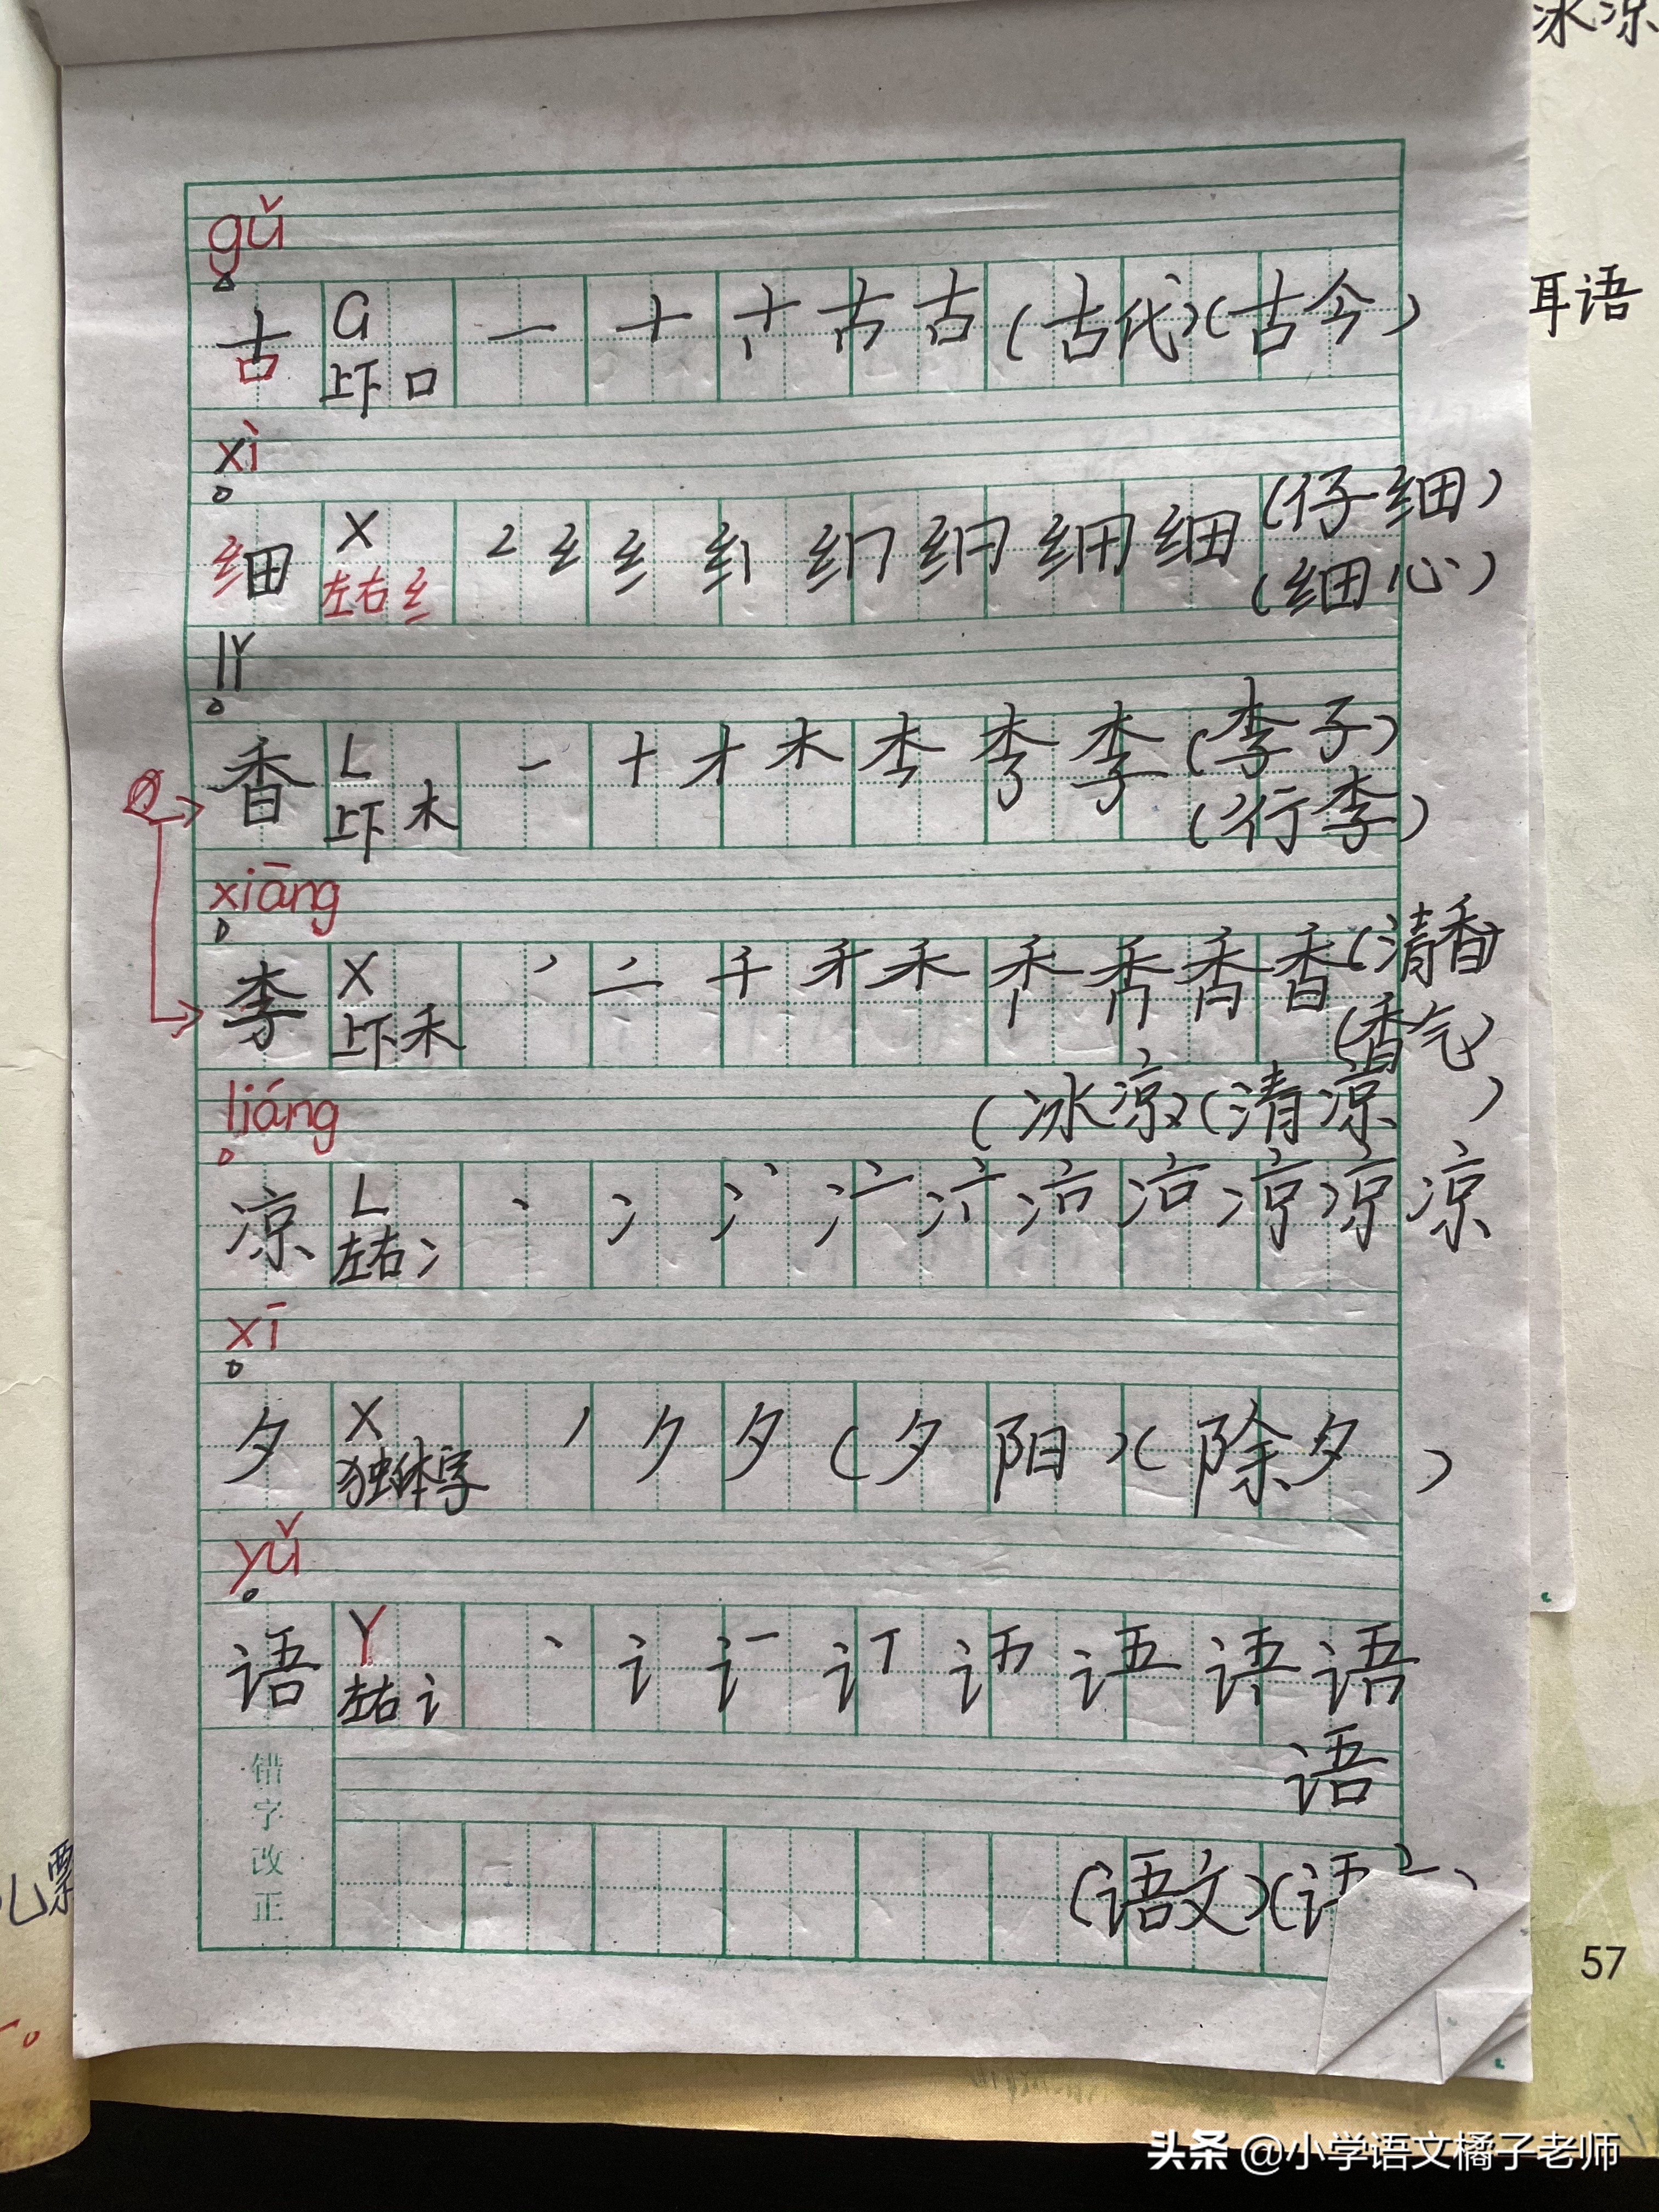 冰凉
gǔ
古 G 一 十 古 古 (古代)(古今)
上下 口
耳语
xì
细 X 纟 细 (仔细)
左右 纟 (细心)
lǐ
香 L 一 十 才 木 李 李 (李子)
上下 木 (行李)
xiāng
李 X 丿 二 千 禾 禾 香 香 (清香)
上下 禾 (香气)
liáng
(冰凉)(清凉)
凉 L 丶 冫 凉 凉
左右 冫
xī
夕 X 丿 ク 夕 (夕阳)(除夕)
独体字
yǔ
语 Y 丶 讠 语 语
左右 讠
语
错字改正
(语文)(语
票
57
头条 @小学语文橘子老师